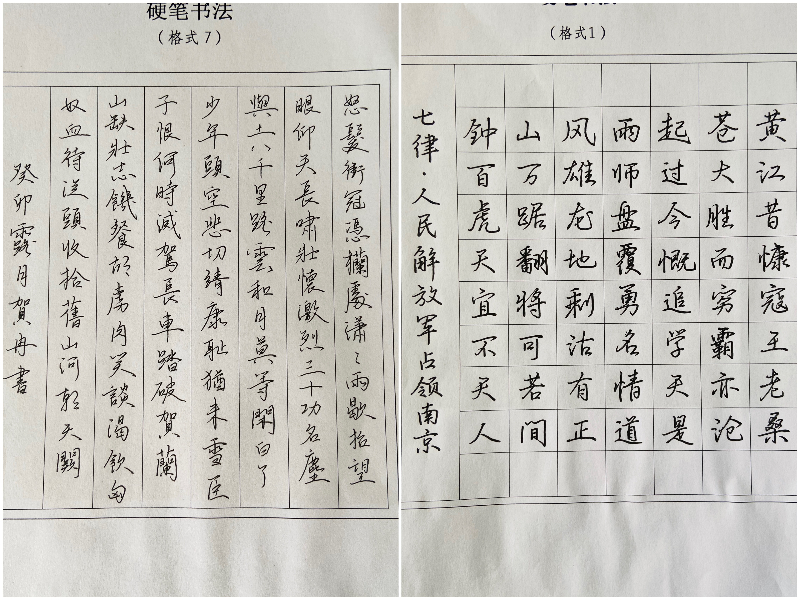 硬笔书法
（格式 7）
怒髮衝冠憑欄處瀟々雨歇抬望
眼仰天長嘯壯懷激烈三十功名塵
與土八千里路雲和月莫等閑白了
少年頭空悲切靖康耻猶未雪臣
子恨何時滅駕長車踏破賀蘭
山缺壯志饑餐胡虜肉笑談渴飲匈
奴血待從頭收拾舊山河朝天闕
癸卯露月賀冉書
（格式 1）
七律·人民解放军占领南京
钟山风雨起苍黄
百万雄师过大江
虎踞龙盘今胜昔
天翻地覆慨而慷
宜将剩勇追穷寇
不可沽名学霸王
天若有情天亦老
人间正道是沧桑